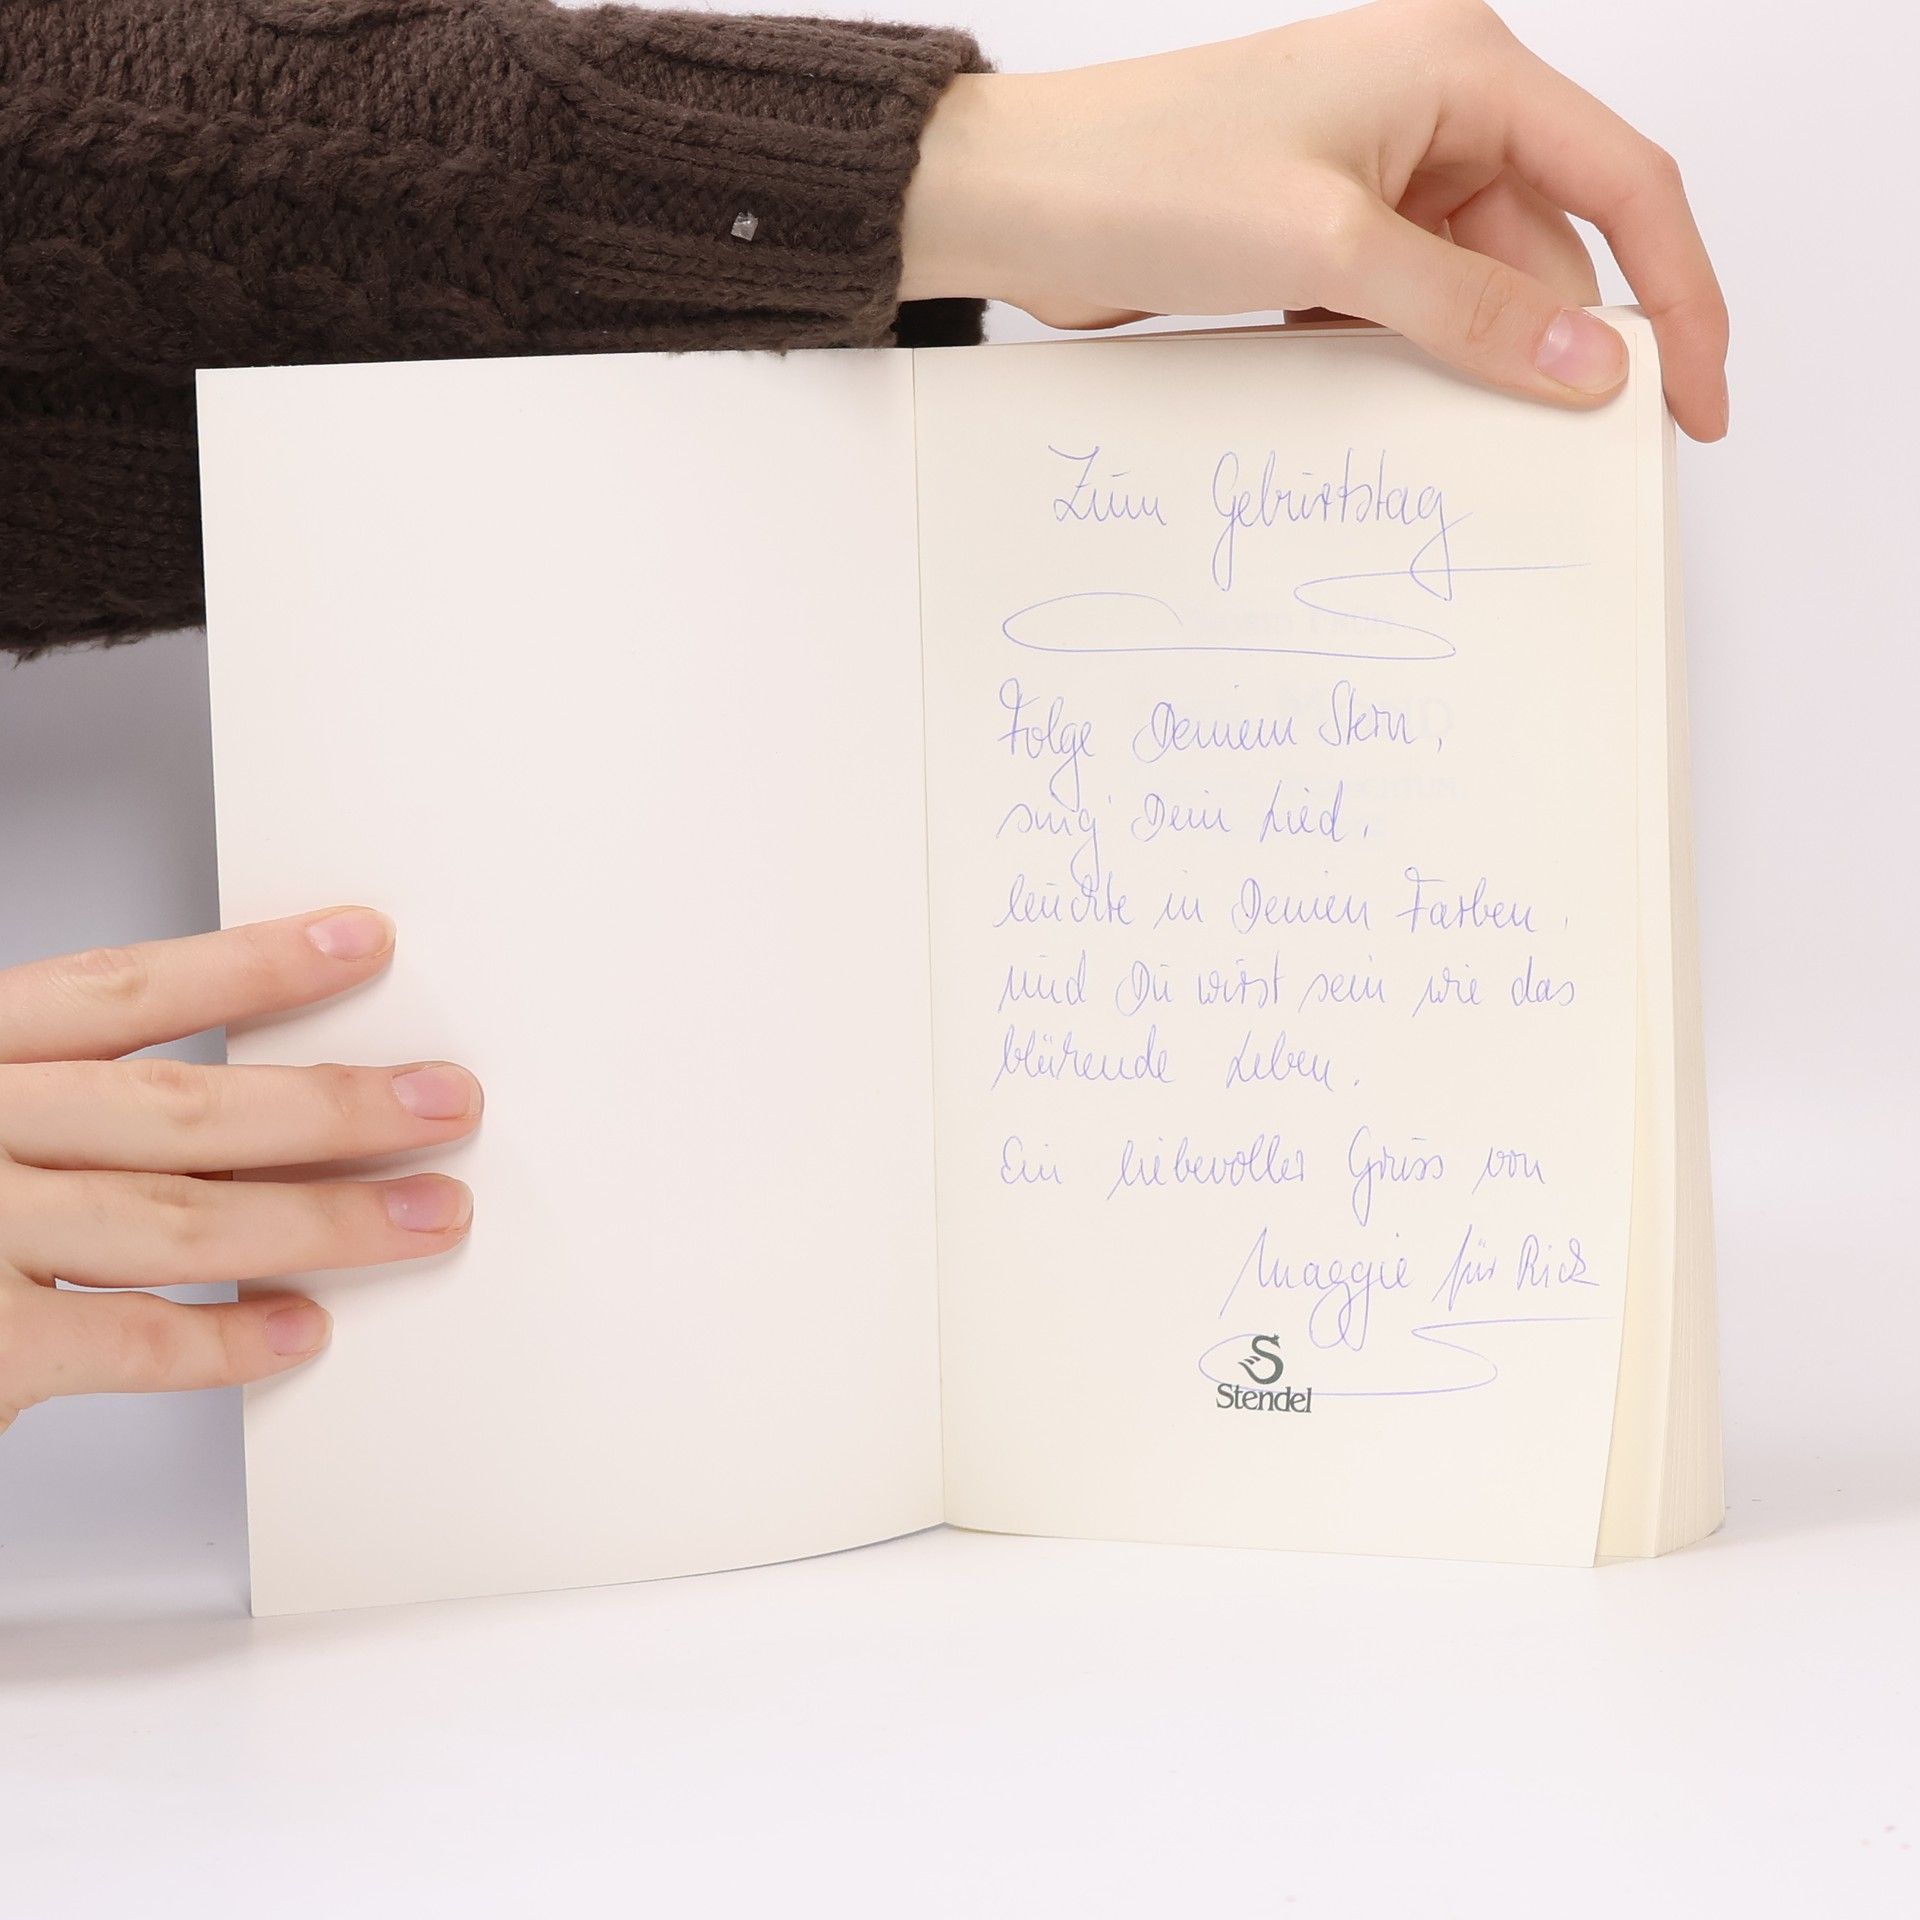 Zum Geburtstag
Folge Deinem Stern,
sing' Dein Lied,
leuchte in Deinen Farben,
und Du wirst sein wie das
blühende Leben.
Ein liebevoller Gruss von
Maggie für Rick
Stendel